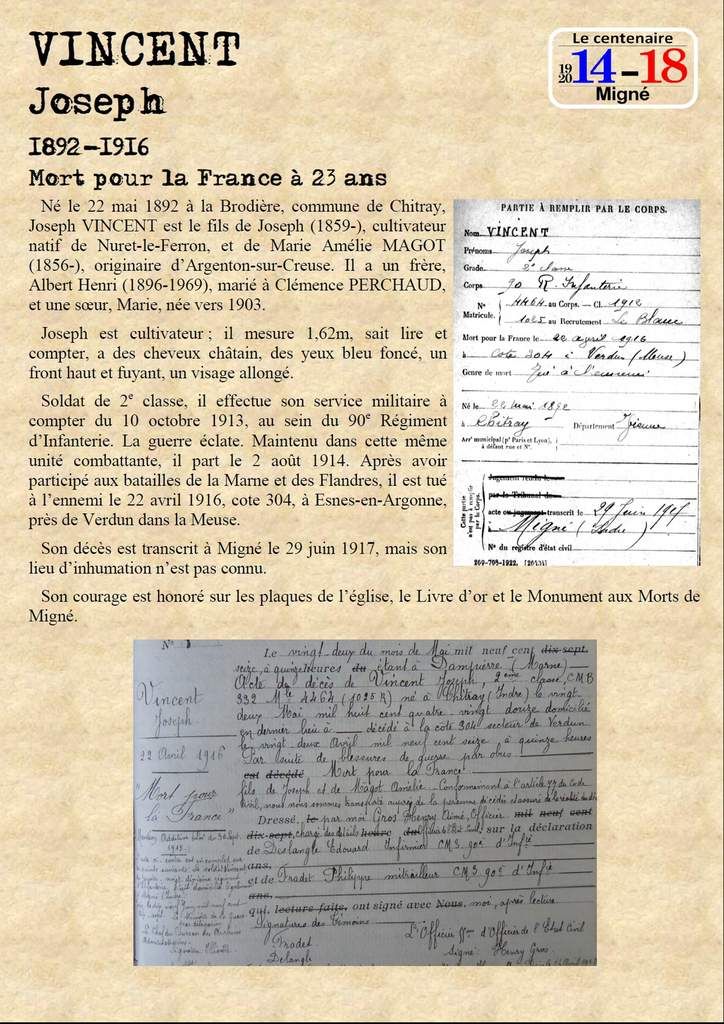 VINCENT
Joseph
1892-1916
Mort pour la France à 23 ans
Le centenaire
1920 14-18
Migné
Né le 22 mai 1892 à la Brodière, commune de Chitray,
Joseph VINCENT est le fils de Joseph (1859-), cultivateur
natif de Nuret-le-Ferron, et de Marie Amélie MAGOT
(1856-), originaire d'Argenton-sur-Creuse. Il a un frère,
Albert Henri (1896-1969), marié à Clémence PERCHAUD,
et une sœur, Marie, née vers 1903.
Joseph est cultivateur ; il mesure 1,62m, sait lire et
compter, a des cheveux châtain, des yeux bleu foncé, un
front haut et fuyant, un visage allongé.
Soldat de 2e classe, il effectue son service militaire à
compter du 10 octobre 1913, au sein du 90e Régiment
d'Infanterie. La guerre éclate. Maintenu dans cette même
unité combattante, il part le 2 août 1914. Après avoir
participé aux batailles de la Marne et des Flandres, il est tué
à l'ennemi le 22 avril 1916, cote 304, à Esnes-en-Argonne,
près de Verdun dans la Meuse.
Son décès est transcrit à Migné le 29 juin 1917, mais son
lieu d'inhumation n'est pas connu.
Son courage est honoré sur les plaques de l'église, le Livre d'or et le Monument aux Morts de
Migné.
PARTIE À REMPLIR PAR LE CORPS.
Nom VINCENT
Prénoms Joseph
Grade 2e classe
Corps 90 R. Infanterie
N° 4464 au Corps. - Cl. 1912
Matricule. 1025 au Recrutement Le Blanc
Mort pour la France le 22 avril 1916
à cote 304 à Verdun (Meuse)
Genre de mort Tué à l'ennemi
Né le 22 mai 1892
à Chitray Département
Arr' municipal (p' Paris et Lyon),
à défaut rue et N°.
Cette partie n'est pas à remplir par le Corps.
Jugement rendu le
par le Tribunal de
acte ou jugement transcrit le 29 Juin 1917
à Migné (Indre)
N° du registre d'état civil
269-708-1922. [26434]
Vincent
Joseph
22 Avril 1916
"Mort pour
la France"
Le vingt-deux du mois de Mai mil neuf cent dix-sept
seize, à quinze heures étant à Dampierre (Marne)
Acte de décès de Vincent Joseph, 2ème classe, C.M.3
332 Mle 4464 (1025 R) né à Chitray (Indre) le vingt
deux Mai mil huit cent quatre-vingt douze domicilié
en dernier lieu à décédé à la cote 304 secteur de Verdun
le vingt deux Avril mil neuf cent seize à quinze heures
Par suite de blessures de guerre par obus
est décédé Mort pour la France
fils de Joseph et de Magot Amélie - Conformément à l'article 77 du Code
Civil, nous nous sommes transporté auprès de la personne décédée
Dressé, par moi Gros Henry Aimé, Officier mil neuf cent
dix-sept, chargé des détails heure sur la déclaration
de Deslangle Edouard Infirmier C.M.3. 90e d'Infie
ans,
et de Pradet Philippe mitrailleur C.M.3 90e d'Infie
ans,
qui, lecture faite, ont signé avec Nous. moi, après lecture
Signatures des Témoins L'Officier d'Officier de l'Etat Civil
Pradet Signé: Henry Gros
Delangle